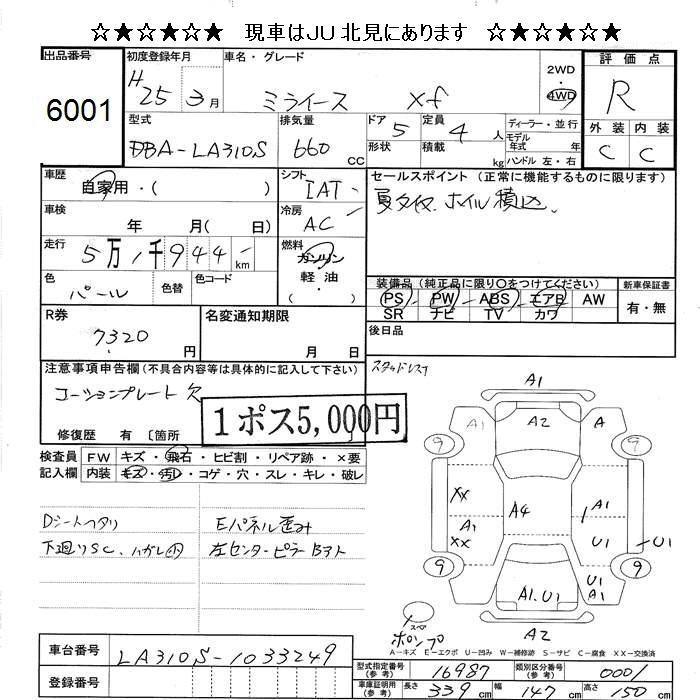 ☆★☆★☆★ 現車はJU北見にあります ☆★☆★☆★
出品番号 初度登録年月 車名・グレード 評価点
6001 H25年3月 ミライース Xf 2WD・4WD R
型式 排気量 ドア 5 定員 4人 ディーラー・並行 外装 内装
DBA-LA310S 660cc 形状 積載 kg モデル年式 年式 ハンドル 左・右 C C
車歴 自家用・( ) シフト IAT セールスポイント (正常に機能するものに限ります)
車検 年 月( 日) 冷房 AC 夏タイヤ、ホイル積込
走行 5万1千944km 燃料 ガソリン・軽油・( )
色 パール 色替 色コード
装備品(純正品に限り○をつけてください) 新車保証書
PS・PW・ABS・エアB AW 有・無
SR ナビ TV カワ
R券 7320円 名変通知期限 月 日 後日品
注意事項申告欄(不具合内容等は具体的に記入して下さい) スタッドレス
コーションプレート欠
1ポス5,000円
修復歴 有 〔箇所
検査員記入欄 FW キズ・飛石・ヒビ割・リペア跡・×要
内装 キズ・汚レ・コゲ・穴・スレ・キレ・破レ
Dシートヘタリ Eパネル歪み
下廻りSC、ハガレ 左センターピラーBアト
A1
A1 A2 A
9 9
XX A1
A1 A4
XX U1 U1
9 U1 A1 9
A1.U1
スペア
ポンプ A2
A-キズ E-エクボ U-凹み W-補修跡 S-サビ C-腐食 XX-交換済
車台番号 LA310S-1033249
登録番号
型式指定番号(参考) 16987 類別区分番号(参考) 0001
車庫証明用(参考) 長さ 339cm 幅 147cm 高さ 150cm